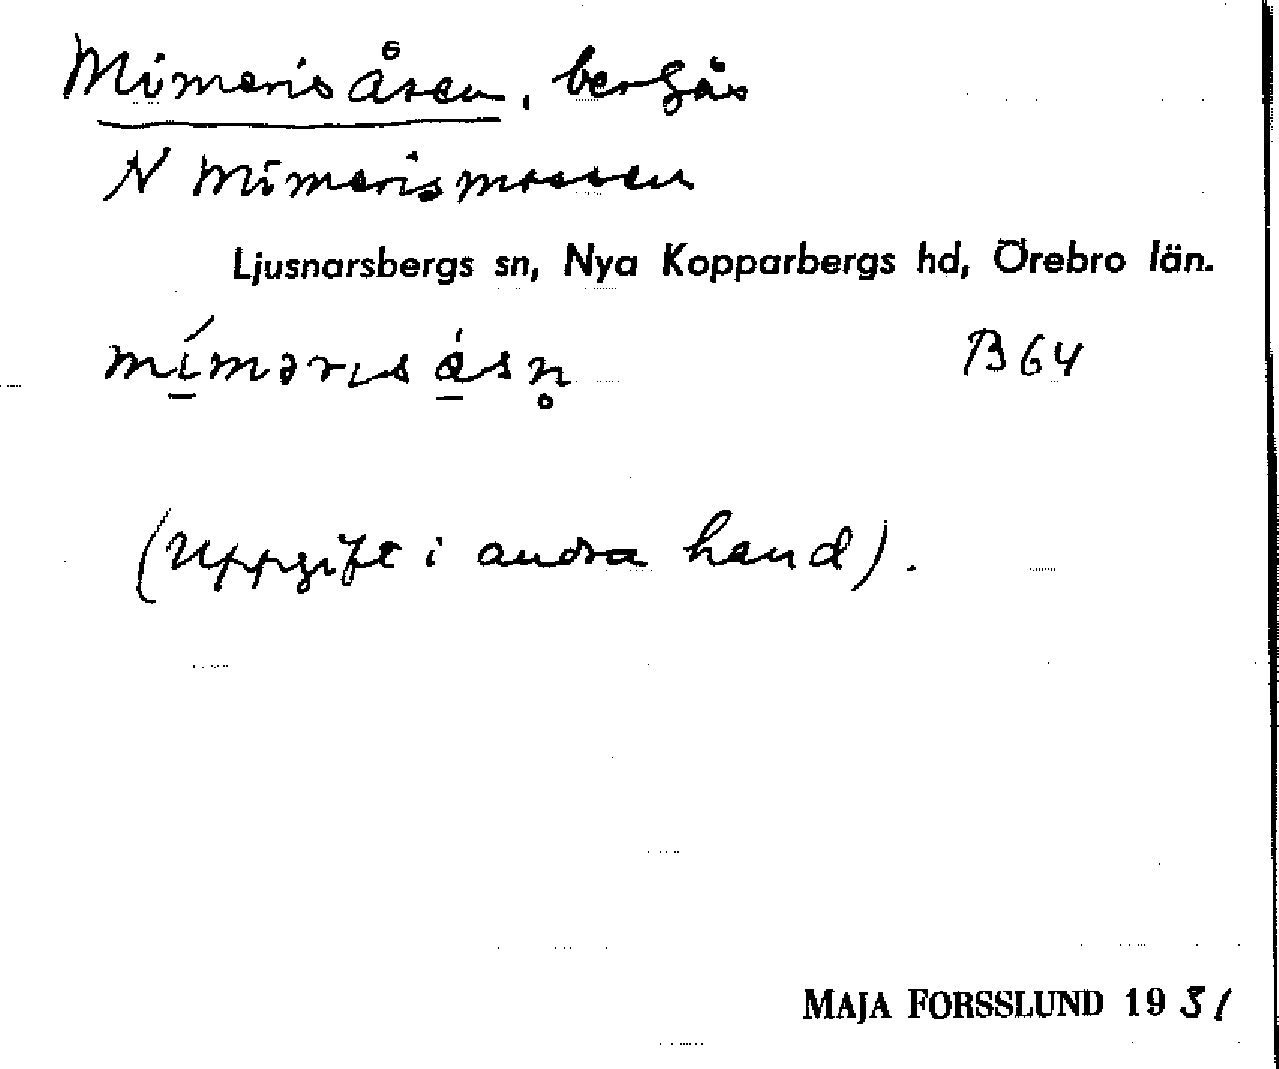 Mimerisåsen, bergås
N Mimerismossen
Ljusnarsbergs sn, Nya Kopparbergs hd, Örebro län.
mímərɩsásn̥ B64
(Uppgift i andra hand).
MAJA FORSSLUND 1951